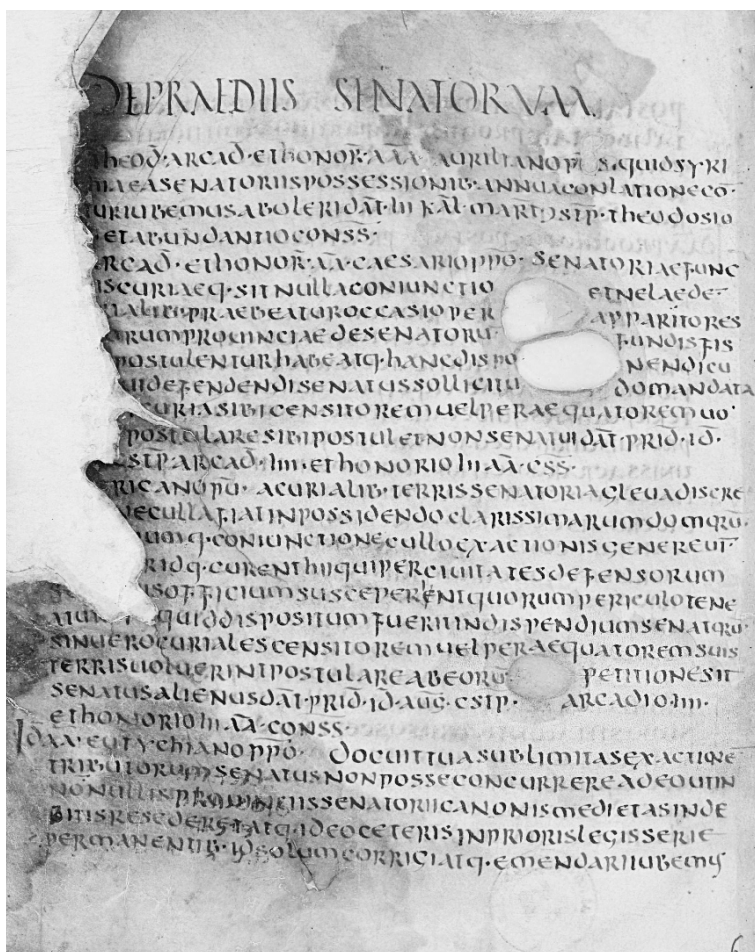 DE PRAEDIIS SENATORUM
theod · arcad · et honor · aaa aureliano pu si quid syri
a senatoriis possessionib · annua conlatione co
iubemus aboleri dat · iii kal · mart · p · s̅t̅p̅ · theodosio
et abundantio conss ·
arcad · et honor · aa · caesario ppo · senatoriae func
curiaeq · sit nulla coniunctio et ne laede
praebeatur occasio per apparitores
provinciae de senatoru fundis fis
postulentur habeatq · hanc dispo nendi cu
defendendi senatus sollicitudo mandata
curia sibi censitorem vel peraequatorem vo
postulare sibi postulet non senatui dat · prid · id ·
s̅t̅p̅ · arcad · iiii · et honorio iii aa · css ·
pu · a curialib · terris senatoria gleva discre
fiat in possidendo clarissimarum domoru
coniunctione e cullo exactionis genere ut
curent hi qui per civitates defensorum
officium susceperent quorum periculo tene
quid dispositum fuerit in dispendium senatoru
sin vero curiales censitorem vel peraequatorem suis
terris voluerint postulare ab eoru petitione sit
senatus alienus dat · prid · id · aug · cstp · arcadio iiii ·
et honorio iii · aa · conss ·
Id aa · eutychiano ppo · docuit tua sublimitas exactione
tributorum senatus non posse concurrere adeo ut in
nonnullis provinciis senatorii canonis medietas in de
bitis resederet atq · ideo ceteris in prioris legis serie
permanentib · id solum corrigi atq · emendari iubemus